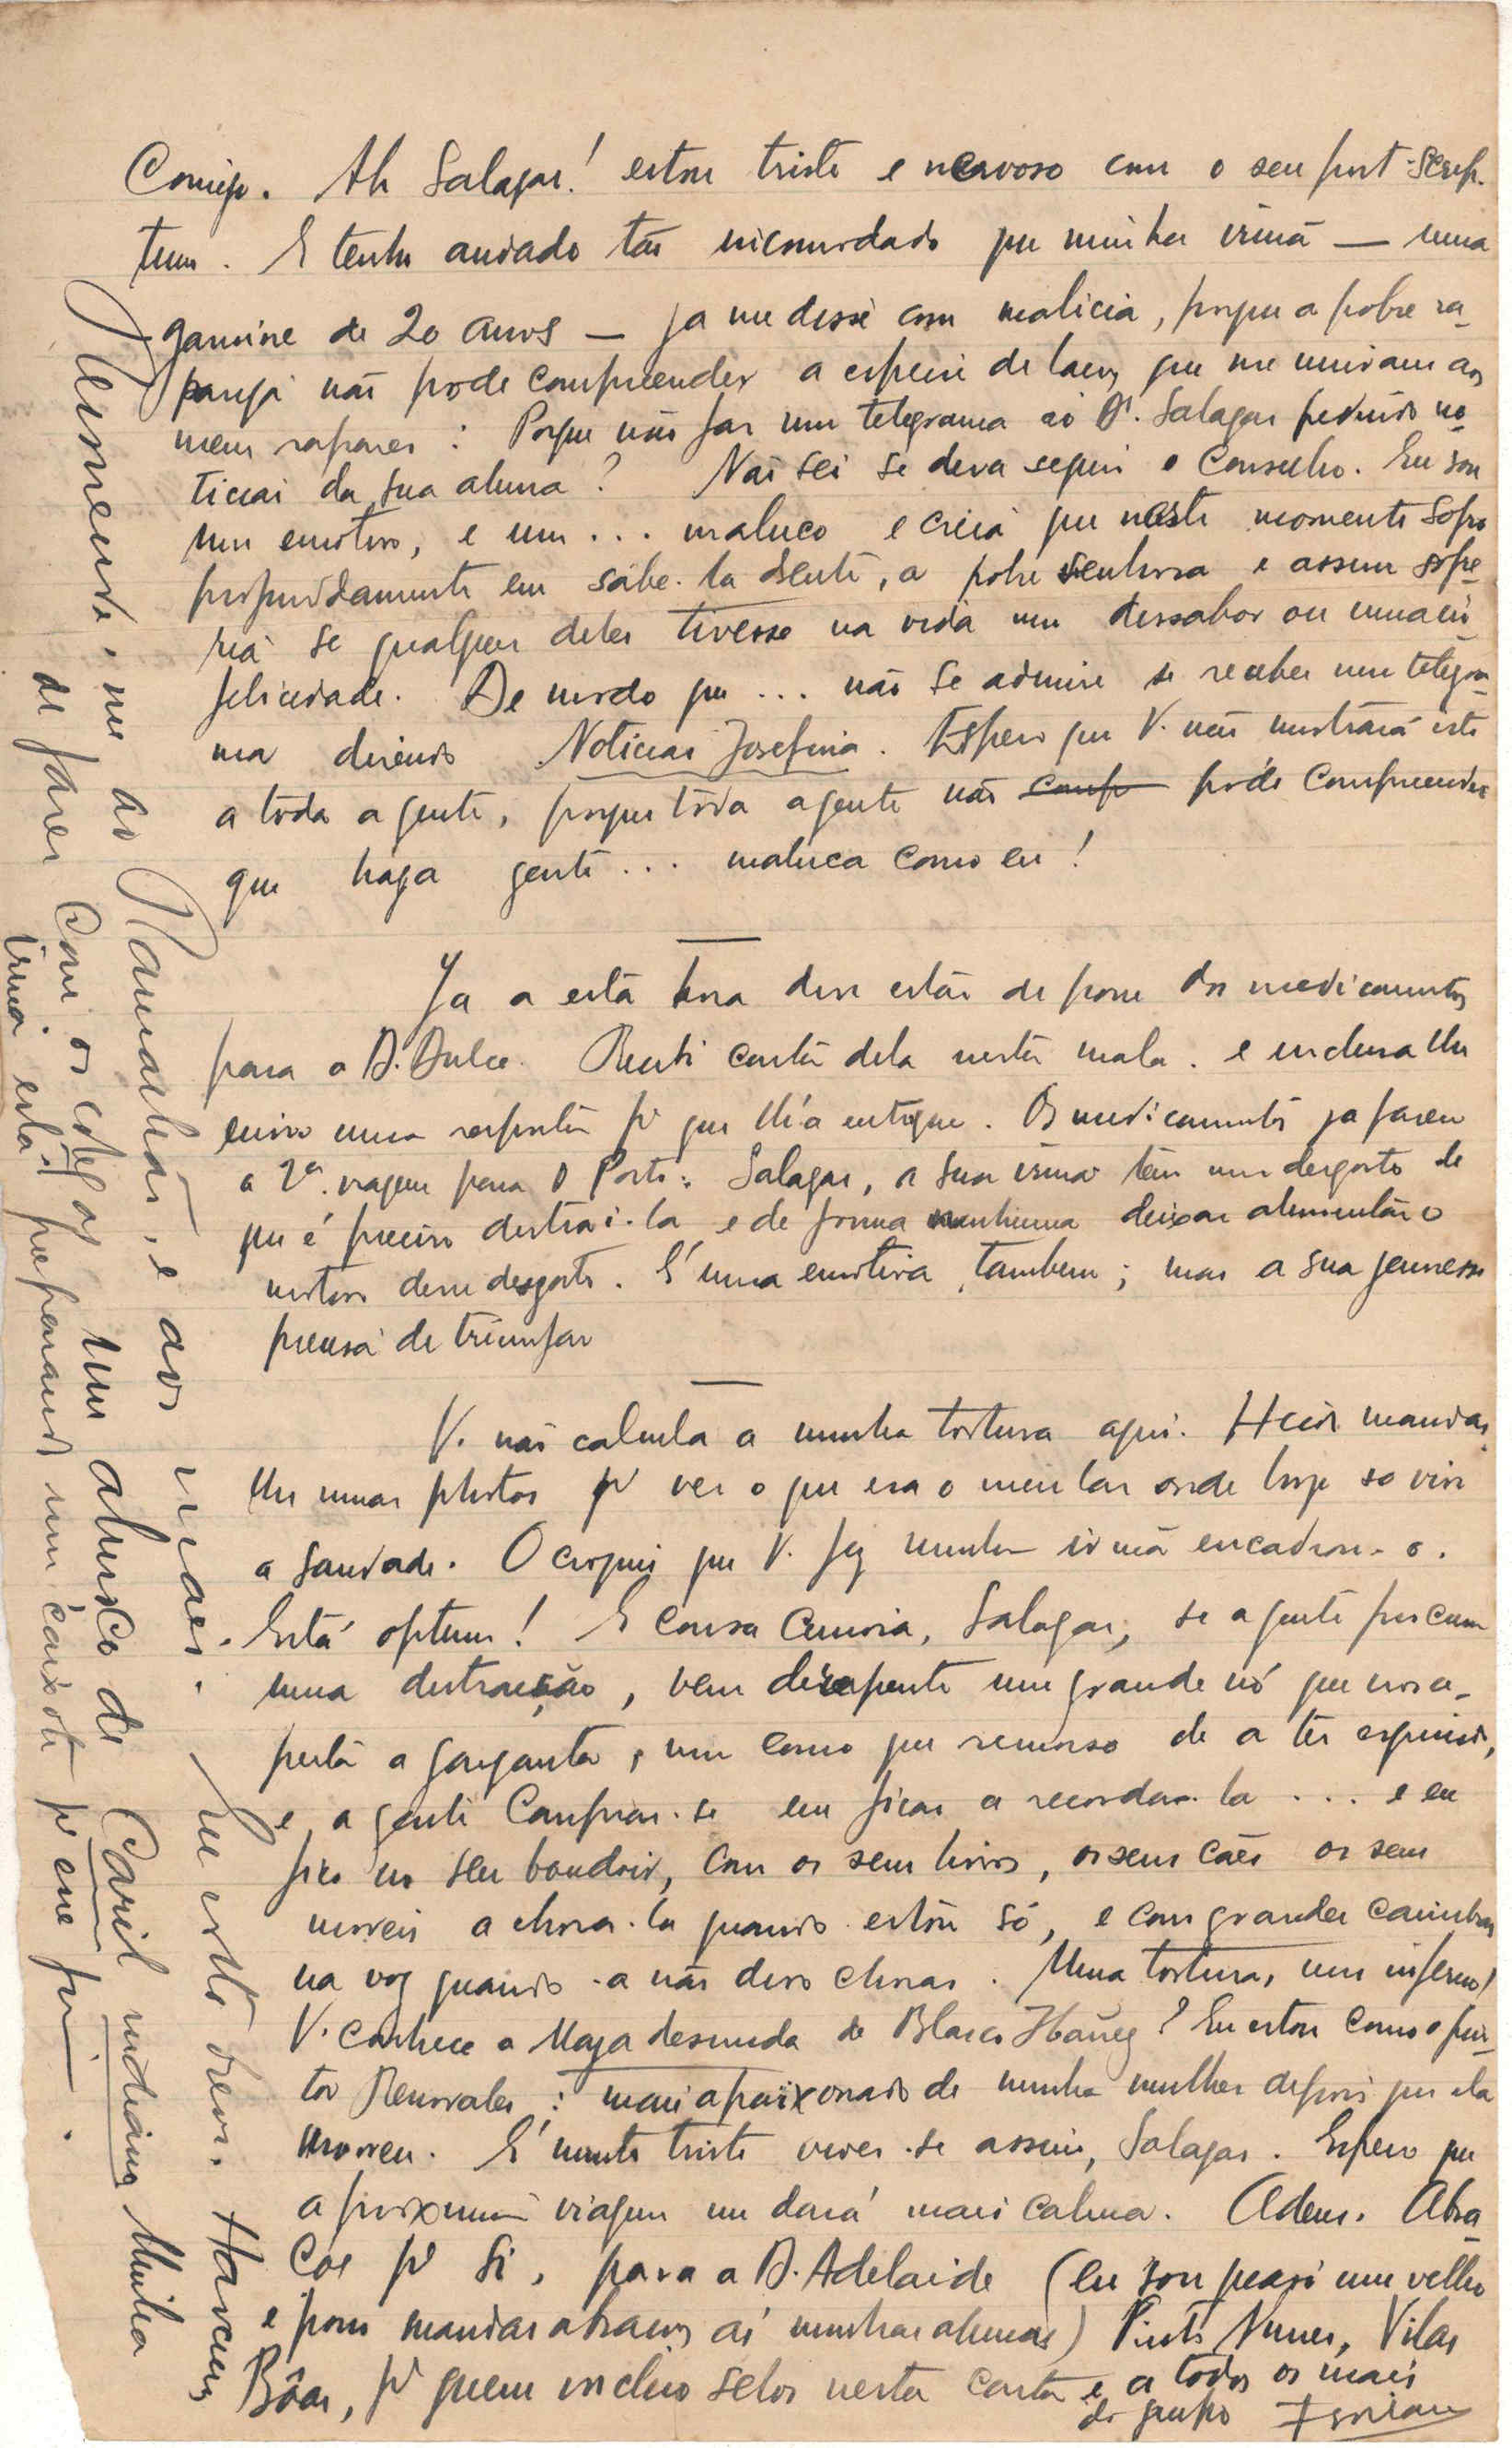 Comigo. Ah Salazar! estou triste e nervoso com o seu post-scrip-
tum. E tenho andado tão incomodado que minha irmã — uma
gamine de 20 anos — ja me disse com malicia, porque a pobre ra-
pariga não pode compreender a especie de laços que me uniram aos
meus rapazes: Porque não faz um telegrama ao Dr. Salazar pedindo no-
ticias da sua aluna? Não sei se deva seguir o conselho. Eu sou
um emotivo, e um... maluco e creia que neste momento sofro
profundamente em sabe-la doente, a pobre senhora e assim sofre-
ria se qualquer deles tivesse na vida um dissabor ou uma in-
felicidade. De modo que... não se admire se receber um telegra-
ma dizendo Noticias Josefina. Espero que V. não mostrará isto
a toda a gente, porque tôda a gente não comp pode compreender
que haja gente... maluca como eu!
Ja a esta hora deve estar de posse dos medicamentos
para a D. Dulce. Recebi carta dela nesta mala. e inclusa lhe
envio uma resposta pª que lh'a entregue. Os medicamentos ja fazem
a 2ª. viagem para o Porto. Salazar, a sua irmã tem um desgosto de
que é preciso distrai-la e de forma nenhuma deixar alimentar o
motivo desse desgosto. É uma emotiva, tambem; mas a sua jeunesse
precisa de triumfar
V. não calcula a minha tortura aqui. Hei de mandar-
lhe umas photos pª ver o que era o meu lar onde hoje so vive
a saudade. O croquis que V. fez minha irmã encadrou-o.
Está optimo! E cousa curiosa, Salazar, se a gente procura
uma distracção, vem de repente um grande nó que nos a-
perta a garganta, um como que remorso de a ter esquecido,
e a gente compraz-se em ficar a recorda-la... e eu
fico no seu boudoir, com os seus livros, os seus cães os seus
moveis a chora-la quando estou só, e com grandes caimbras
na voz quando a não devo chorar. Uma tortura, um inferno!
V. conhece a Maja desnuda de Blasco Ibañez? Eu estou como o pin-
tor Renovales: mais apaixonado de minha mulher depois que ela
morreu. É muito triste viver-se assim, Salazar. Espero que
a proxima viagem me dará mais calma. Adeus. Abra-
ços pª si, para a D. Adelaide (eu sou quasi um velho
e posso mandar abraços ás minhas alunas) Pinto Nunes, Vilas
Bôas, pª quem incluo selos nesta carta e a todos os mais
do grupo
ao Ramalhão, e aos mais. Haveis
de fazer com os colegas um almoço de Caril indiano Minha
irmã está preparando um caixote pª esse fim.